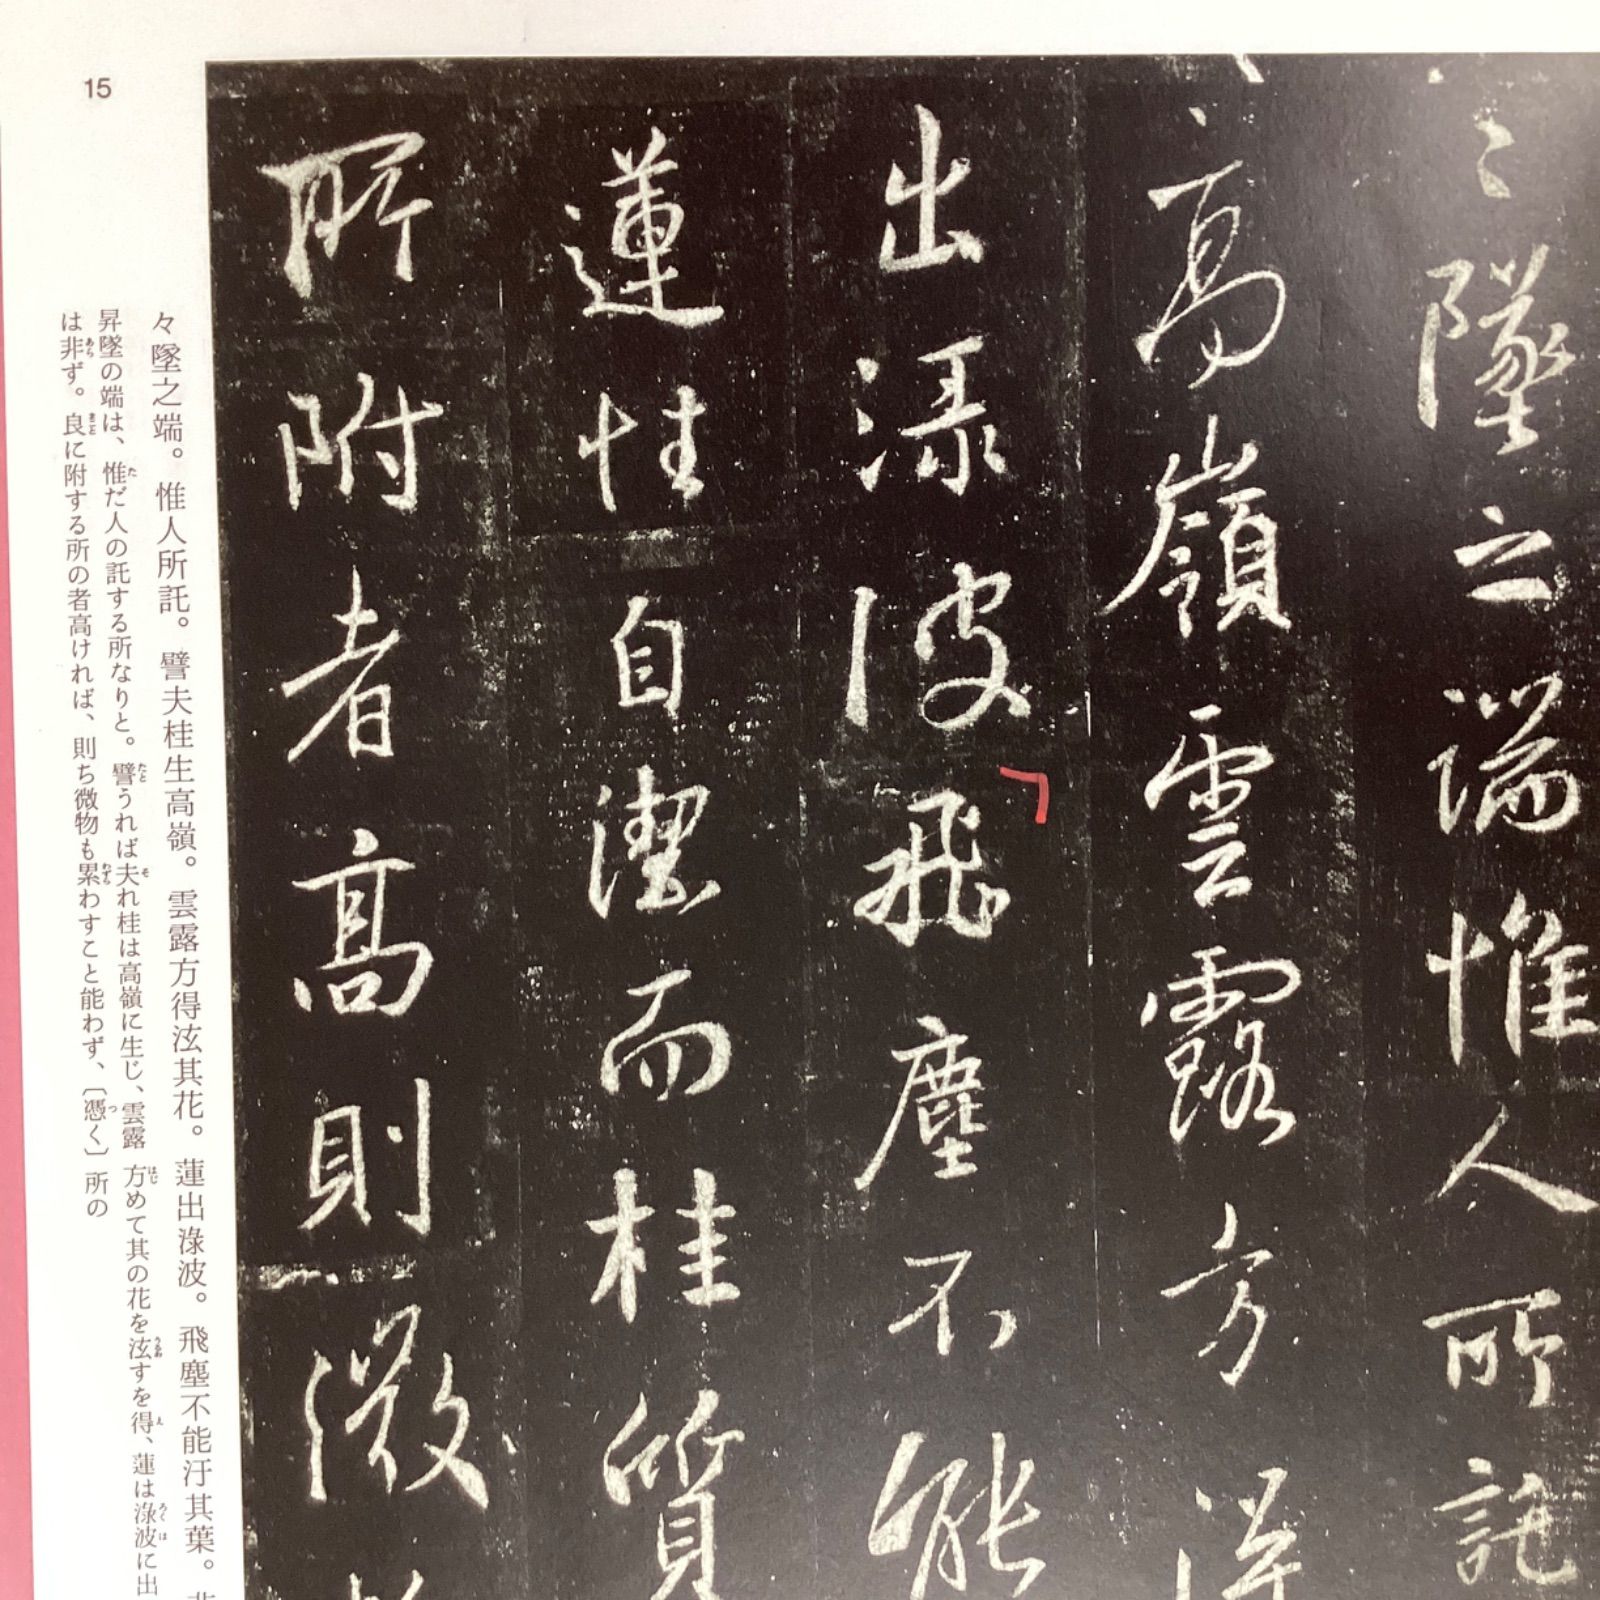 〻墜之端惟人所託
高嶺雲露方得
出淥波飛塵不能
蓮性自潔而桂質
所附者高則微
15
々墜之端。惟人所託。譬夫桂生高嶺。雲露方得泫其花。蓮出淥波。飛塵不能汙其葉。非
昇墜の端は、惟だ人の託する所なりと。譬うれば夫れ桂は高嶺に生じ、雲露方めて其の花を泫すを得、蓮は淥波に出
は非ず。良に附する所の者高ければ、則ち微物も累わすこと能わず、〔憑く〕所の